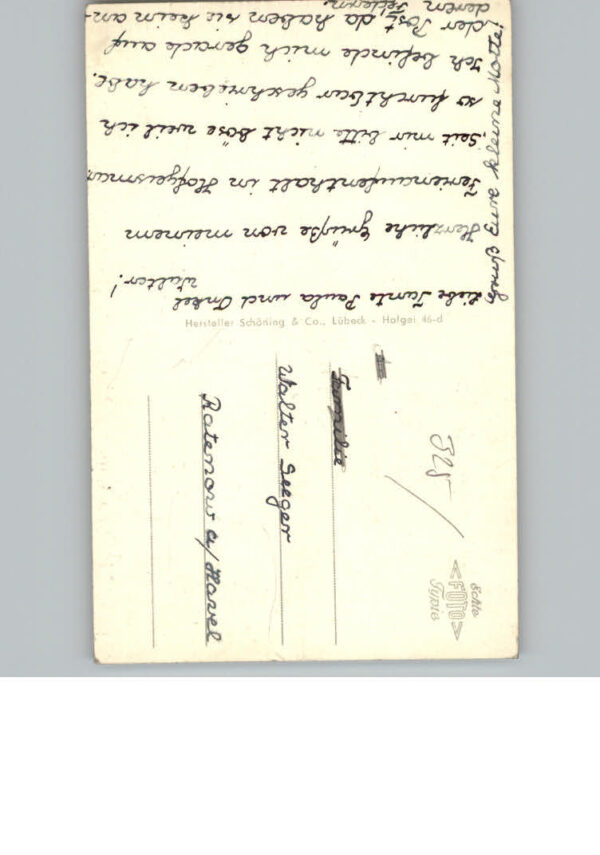 Liebe Tante Paula und Onkel
Walter!
Herzliche Grüße von meinem
Ferienaufenthalt in Hofgeismar
Seit mir bitte nicht böse weil ich
so furchtbar geschrieben habe.
Ich befinde mich gerade auf
der Post da haben sie kein an-
deren Federn.
Gruß Eure kleine Motte!
Hersteller Schöning & Co., Lübeck - Hofgei 46-d
Echte
FOTO
Typie
325
Familie
Walter Seeger
Ratenow a/Havel